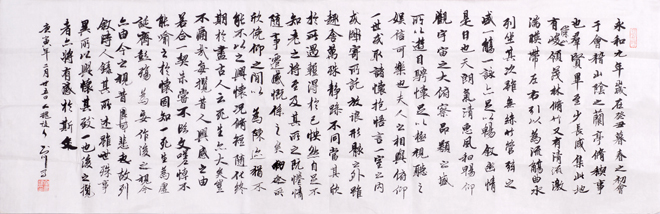 永和九年歲在癸丑暮春之初會
于會稽山陰之蘭亭脩稧事
也群賢畢至少長咸集此地
有崇山峻領茂林脩竹又有清流激
湍暎帶左右引以為流觴曲水
列坐其次雖無絲竹管弦之
盛一觴一詠亦足以暢叙幽情
是日也天朗氣清惠風和暢仰
觀宇宙之大俯察品類之盛
所以遊目騁懷足以極視聽之
娛信可樂也夫人之相與俯仰
一世或取諸懷抱悟言一室之內
或因寄所託放浪形骸之外雖
趣舍萬殊靜躁不同當其欣
於所遇蹔得於己怏然自足不
知老之將至及其所之既惓情
隨事遷感慨係之矣向之所
欣俛仰之閒以為陳迹猶不
能不以之興懷況脩短隨化終
期於盡古人云死生亦大矣豈
不痛哉每攬昔人興感之由
若合一契未嘗不臨文嗟悼不
能喻之於懷固知一死生為虛
誕齊彭殤為妄作後之視今
亦由今之視昔悲夫故列
叙時人錄其所述雖世殊事
異所以興懷其致一也後之攬
者亦將有感於斯文
庚寅年二月廿五日